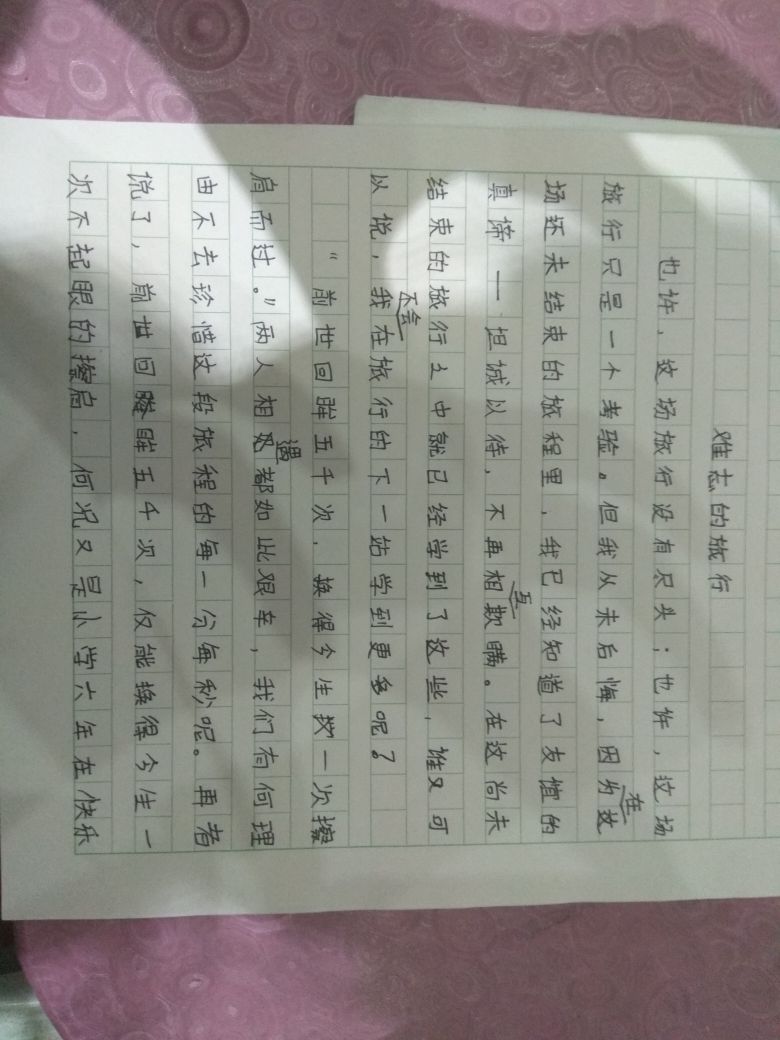 难忘的旅行
也许，这场旅行没有尽头；也许，这场
旅行只是一个考验。但我从未后悔，因为在这
场还未结束的旅程里，我已经知道了友谊的
真谛——坦诚以待，不再相互欺瞒。在这尚未
结束的旅行之中就已经学到了这些，谁又可
以说，我不会在旅行的下一站学到更多呢？
“前世回眸五千次，换得今生一次擦
肩而过。”两人相遇都如此艰辛，我们有何理
由不去珍惜这段旅程的每一分每秒呢。再者
说了，前世回眸五千次，仅能换得今生一
次不起眼的擦肩，何况又是小学六年在快乐